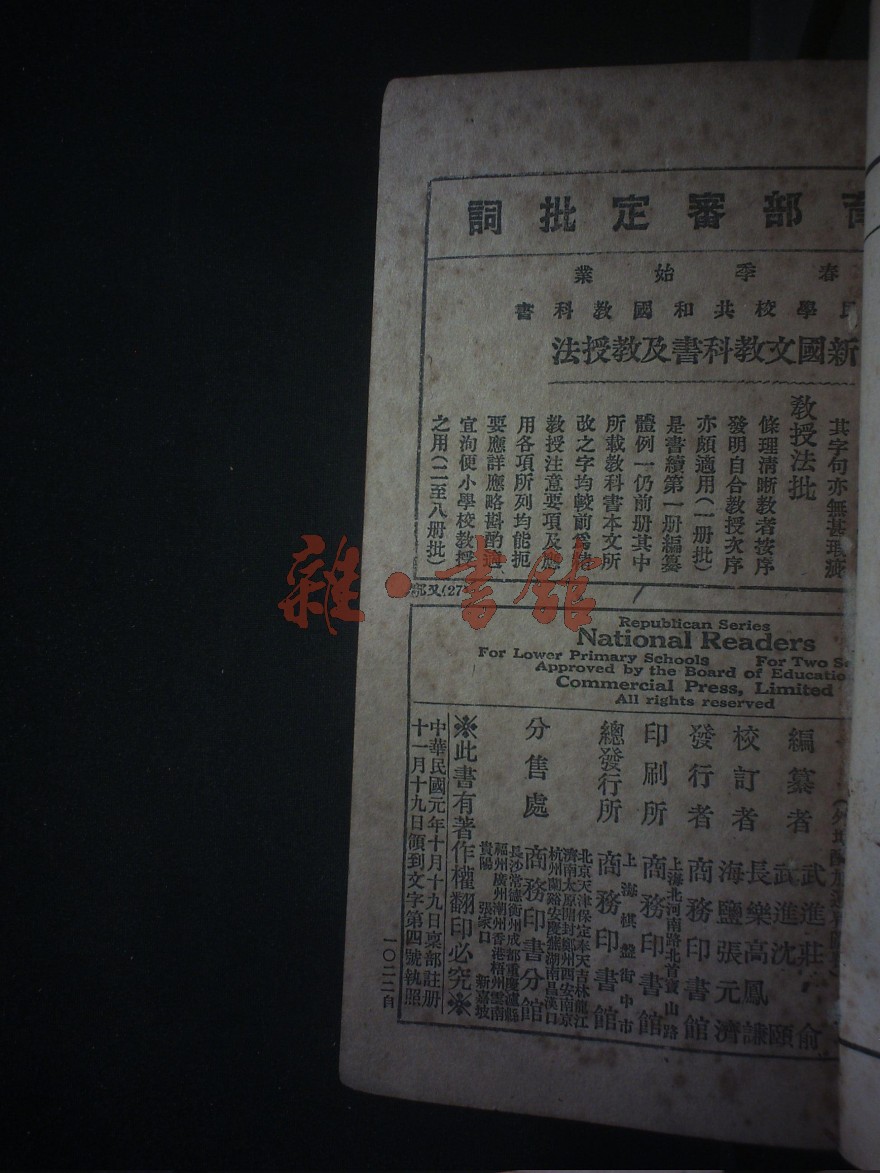 部審定批詞
春季始業
學校共和國教科書
新國文教科書及教授法
其字句亦無甚瑕疵
教授法批
條理清晰教者按序
發明自合教授次序
亦頗適用(一册批)
是書續第一册編纂
體例一仍前册其中
所載教科書本文所
改之字均較前爲
教授注意要項及應
用各項所列均能扼
要應詳應略斟酌適
宜洵便小學校教授
之用(二至八册批)
Republican Series
National Readers
For Lower Primary Schools For Two
Approved by the Board of
Commercial Press, Limited
All rights reserved
編纂者 武進莊俞
武進沈頤
校訂者 長樂高鳳謙
海鹽張元濟
發行者 商務印書館
印刷所 上海北河南路北首寶山路
商務印書館
總發行所 上海棋盤街中市
商務印書館
分售處 北京天津保定奉天吉林龍江
濟南太原開封鄭州西安南京
杭州蘭谿安慶蕪湖南昌漢口
商務印書分館
長沙常德衡州成都重慶瀘縣
福州廣州潮州香港梧州雲南
貴陽 張家口 新嘉坡
※此書有著作權翻印必究※
中華民國元年十月十九日稟部註册
十一月十九日領到文字第四號執照
一〇二二自
雜·書館